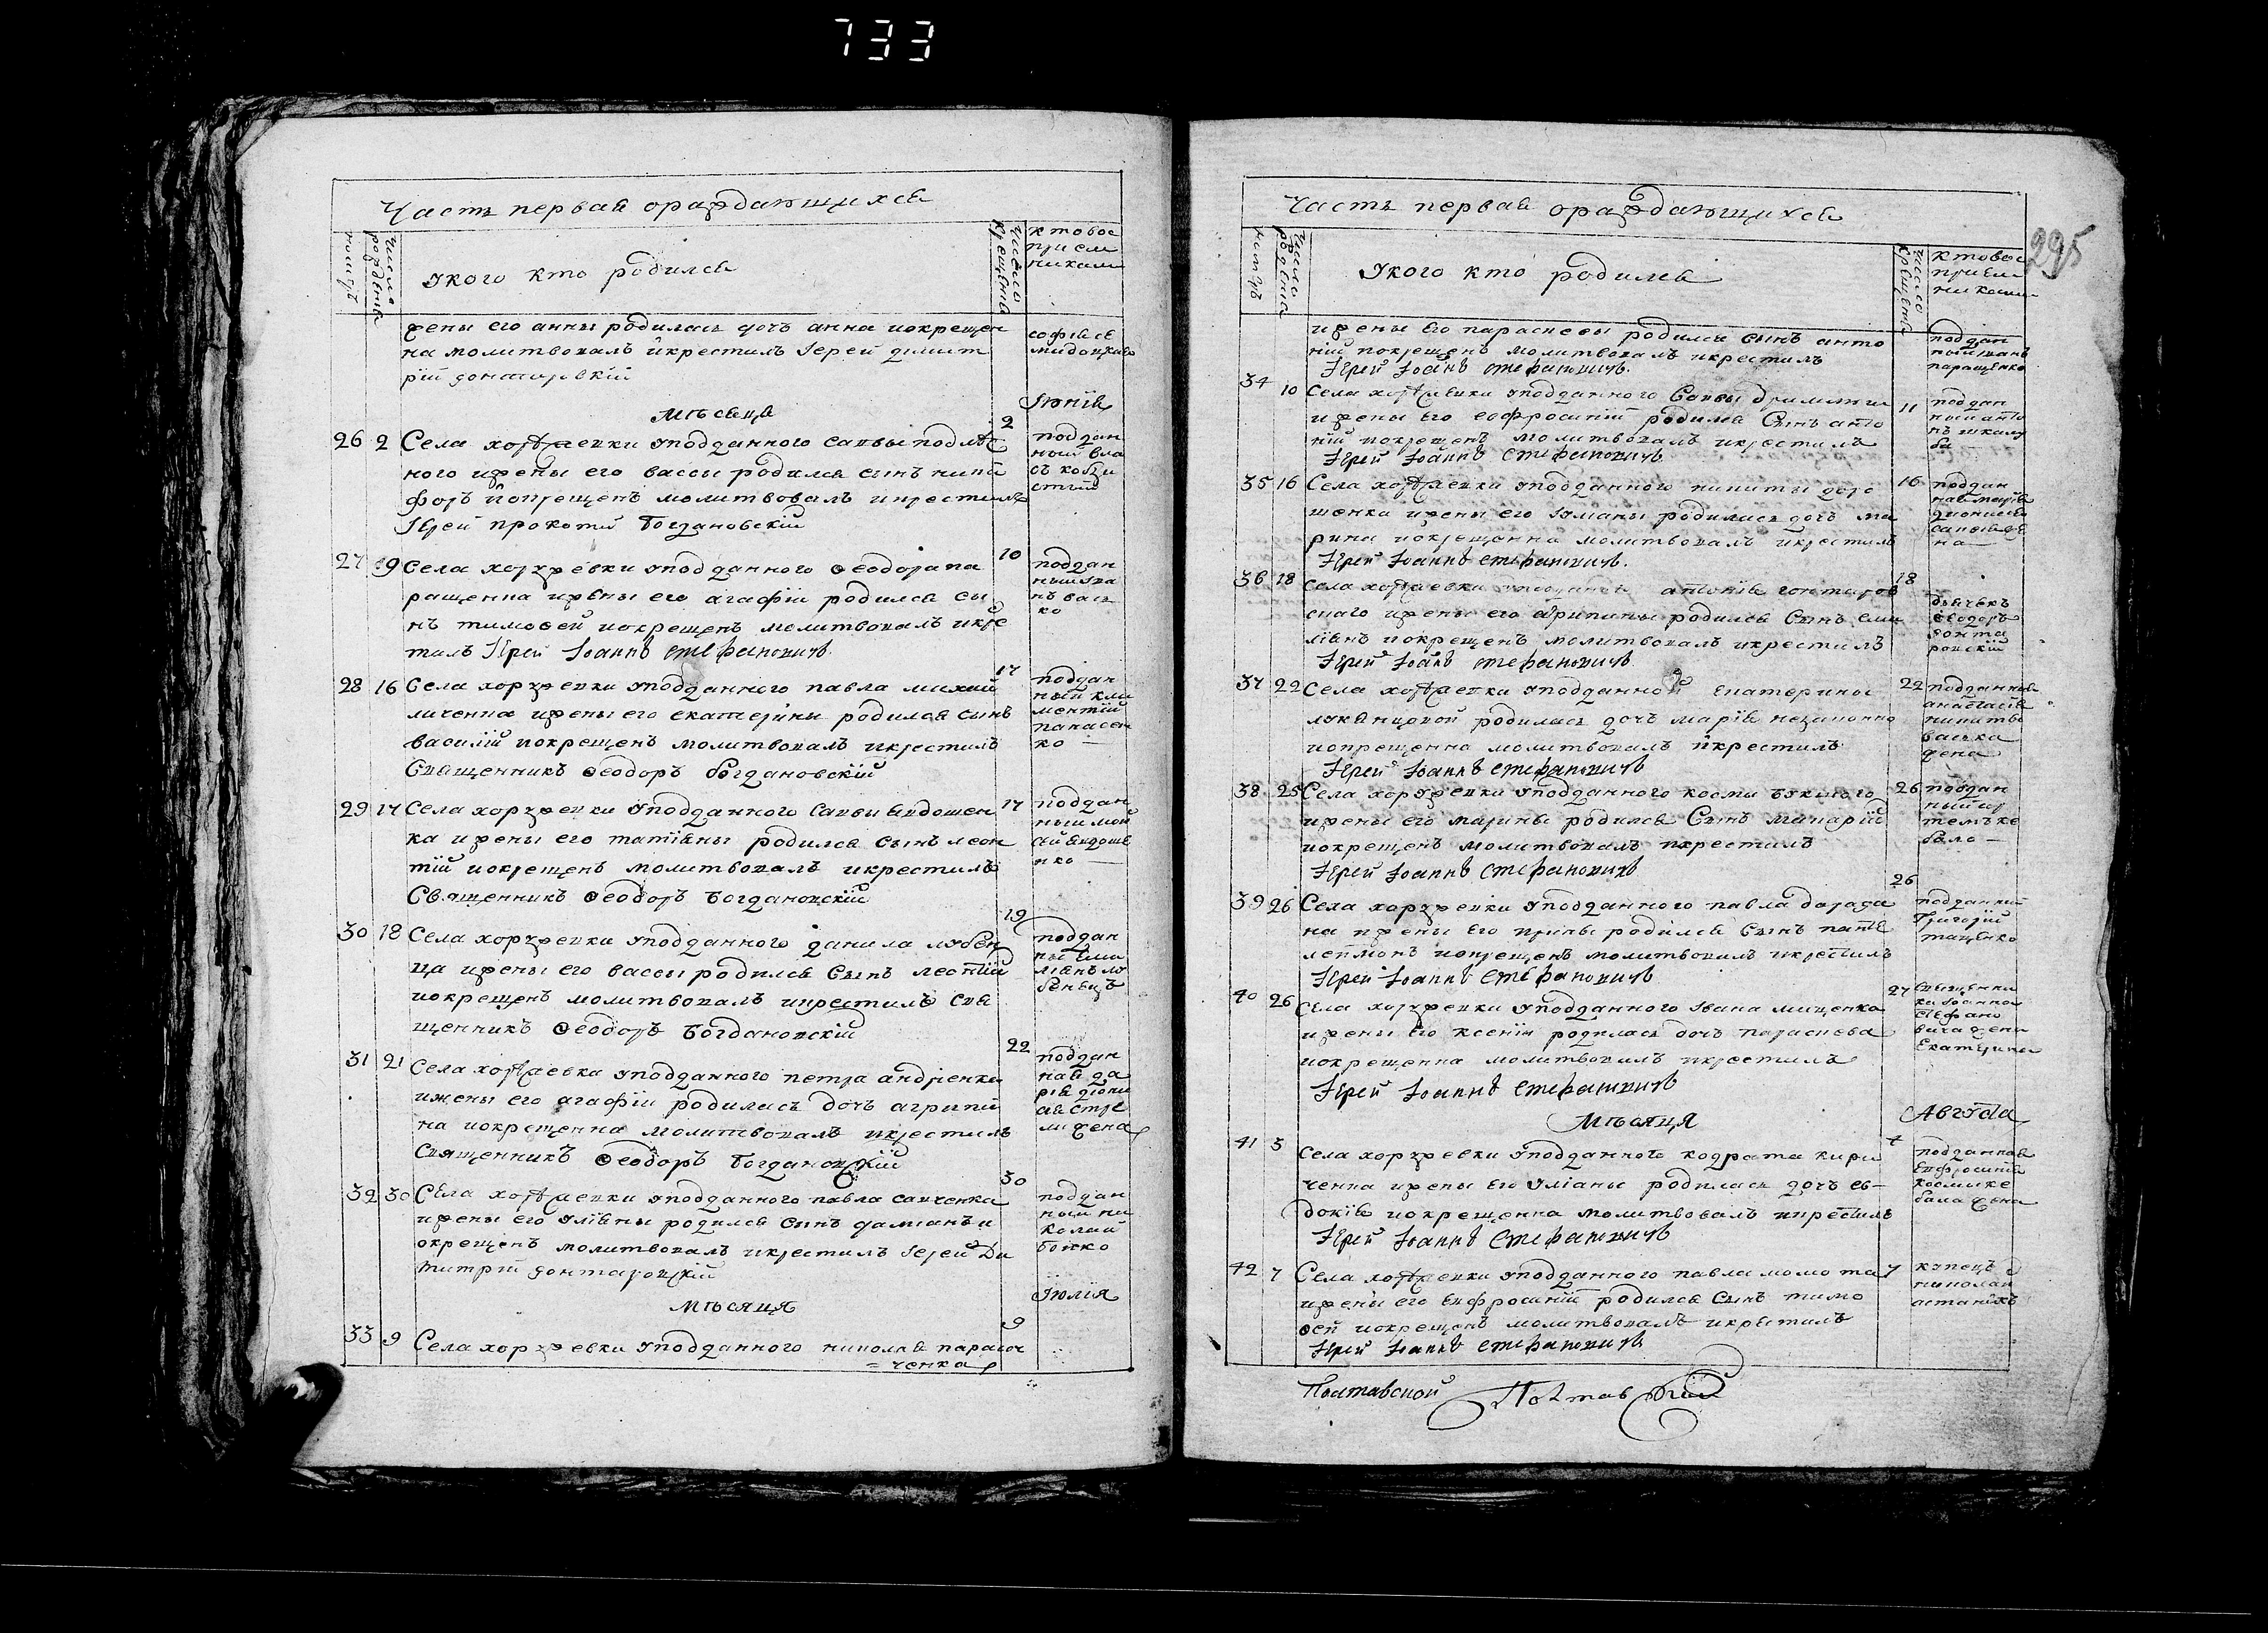 733
Часть первая ораждающихся
номѣръ
число рождения
укого кто родился
число крещения
ктовос
прием
никами
жены его анны родилась дочь анна иокрещен
на молитвовалъ икрестилъ Іерей димит
рій
софія
мѣсяца
Іюнія
26 2 Села уподданного саввы
ного ижены его вассы родился сынъ ники
форъ иокрещенъ молитвовалъ икрестилъ
Іерей прокопій Богдановскій
2
поддан
ный вла
съ
27 9 Села хоружевки уподданного Ѳеодора па
ращенка ижены его агафіи родился сы
нъ тимоѳей иокрещенъ молитвовалъ икре
тилъ Іерей Іоаннъ стефановичъ
10
поддан
ный ива
нъ вась
ко
28 16 Села хоружевки уподданного павла михай
личенка ижены его екатерины родился сынъ
василій иокрещенъ молитвовалъ икрестилъ
Священникъ Ѳеодоръ богдановскій
17
поддан
ный кли
ментій
панасен
ко —
29 17 Села хоружевки уподданного Саввы Евдошен
ка ижены его татіяны родился сынъ леон
тій иокрещенъ молитвовалъ икрестилъ
Священникъ Ѳеодоръ Богдановскій
17
поддан
ный мой
сій Евдоше
нко —
30 18 Села хоружевки уподданного данила любен
ца ижены его вассы родился Сынъ леонтій
иокрещенъ молитвовалъ икрестилъ Свя
щенникъ Ѳеодоръ Богдановскій
19
поддан
ны Еми
ліянъ лю
бенецъ
31 21 Села уподданного петра андренка
ижены его агафіи родилась дочь агрипи
на иокрещенна молитвовалъ икрестилъ
Священникъ Ѳеодоръ Богдановскій
22
поддан
ная да
рія
жена
32 30 Села уподданного павла савченка
ижены его уліяны родился сынъ даміанъ и
окрещенъ молитвовалъ икрестилъ Іерей Ди
митрій
30
поддан
ный ни
колай
божко
мѣсяця
Іюлія
33 9 Села хоружевки уподданного николая парасоч
= ченка
9
Часть первая ораждающихся
295
номѣръ
число рождения
Укого кто родился
число крещения
ктовос
прием
никами
ижены Его параскевы родился сынъ анто
ній иокрещенъ молитвовалъ икрестилъ
Іерей Іоаннъ стефановичъ.
поддан
ный иванъ
паращенко
34 10 Села уподданного Саввы
ижены Его евфросиніи родился Сынъ анто
ній иокрещенъ молитвовалъ икрестилъ
Іерей Іоаннъ Стефановичъ
11
поддан
ный анто
нъ шкалу
ба
35 16 Села уподданного никиты доро
шенка ижены его Іуліаны родилась дочь ма
рина иокрещенна молитвовалъ икрестилъ
Іерей Іоаннъ стефановичъ.
16
поддан
ная марія
36 18 Села антонія гонтаров
скаго ижены его агрипины родился Сынъ еми
ліянъ иокрещенъ молитвовалъ икрестилъ
Іерей Іоаннъ стефановичъ
18
дьячекъ
Ѳеодоръ
гонта
ровскій
37 22 Села уподданной Екатерины
родилась дочь марія незаконно
иокрещенна молитвовалъ икрестилъ
Іерей Іоаннъ стефановичъ
22
подданная
анастасія
никиты
васька
жена
38 25 Села хоружевки уподданного космы
ижены его марины родился Сынъ макарій
иокрещенъ молитвовалъ икрестилъ
Іерей Іоаннъ Стефановичъ
26
поддан
ный ар
темъ ке
бало —
39 26 Села хоружевки уподданного павла
на ижены Его ирины родился Сынъ панте
леймонъ иокрещенъ молитвовалъ икрестилъ
Іерей Іоаннъ Стефановичъ
26
подданный
Григорій
тащенко
40 26 Села хоружевки уподданного Івана мищенка
ижены Его Ксеніи родилась дочь параскева
иокрещенна молитвовалъ икрестилъ
Іерей Іоаннъ Стефановичъ
27
священни
ка Іоанна
Стефано
вича жена
Екатерина
Мѣсяця
Августа
41 5 Села хоружевки Уподданного кодрата кири
ченка ижены Его Уліаны родилась дочь ев—
докія иокрещенна молитвовалъ икрестилъ
Іерей Іоаннъ Стефановичъ
7
подданная
Евфросинія
космы ке
бала жена
42 7 Села уподданного павла момота
ижены его Евфросиніи родился Сынъ тимо
ѳей иокрещенъ молитвовалъ икрестилъ
Іерей Іоаннъ стефановичъ
7
купецъ
николай
Полтавской Полтавской